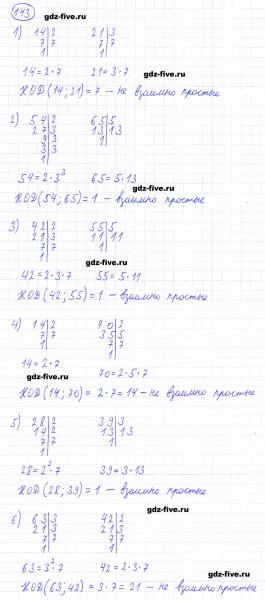 143
gdz-five.ru
1) 14|2 21|3
7|7 7|7
1| 1|
14 = 2 · 7 21 = 3 · 7
gdz-five.ru
НОД (14; 21) = 7 - не взаимно простые
gdz-five.ru
2) 54|2 65|5
27|3 13|13
9|3 1|
3|3
1|
54 = 2 · 3³ 65 = 5 · 13
gdz-five.ru
НОД (54; 65) = 1 - взаимно простые
gdz-five.ru
3) 42|2 55|5
21|3 11|11
7|7 1|
1|
gdz-five.ru
42 = 2 · 3 · 7 55 = 5 · 11
НОД (42; 55) = 1 - взаимно простые
gdz-five.ru
4) 14|2 70|2
7|7 35|5
1| 7|7
1|
14 = 2 · 7
gdz-five.ru
70 = 2 · 5 · 7
НОД (14; 70) = 2 · 7 = 14 - не взаимно простые
gdz-five.ru
5) 28|2 39|3
14|2 13|13
7|7 1|
1|
28 = 2² · 7 39 = 3 · 13
gdz-five.ru
НОД (28; 39) = 1 - взаимно простые
gdz-five.ru
6) 63|3 42|2
21|3 21|3
7|7 7|7
1| 1|
gdz-five.ru
63 = 3² · 7 42 = 2 · 3 · 7
НОД (63; 42) = 3 · 7 = 21 - не взаимно простые
gdz-five.ru